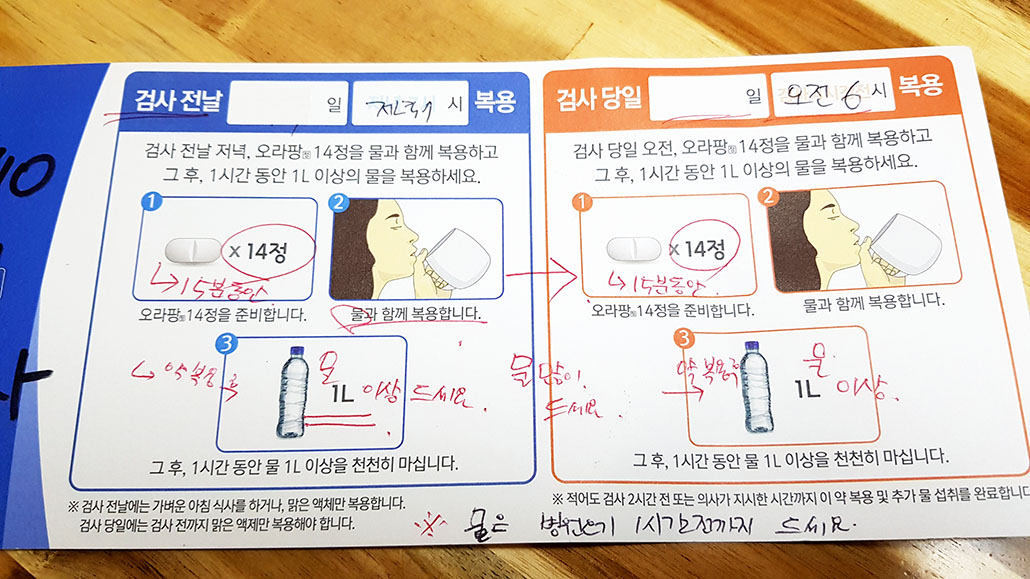 검사 전날 일 저녁 시 복용
검사 전날 저녁, 오라팡정 14정을 물과 함께 복용하고
그 후, 1시간 동안 1L 이상의 물을 복용하세요.
1
x 14정
↳ 15분동안
오라팡정 14정을 준비합니다.
2
물과 함께 복용합니다.
3
↳ 약 복용 후
물
1L 이상 드세요.
그 후, 1시간 동안 물 1L 이상을 천천히 마십니다.
※ 검사 전날에는 가벼운 아침 식사를 하거나, 맑은 액체만 복용합니다.
검사 당일에는 검사 전까지 맑은 액체만 복용해야 합니다.
물 많이
드세요.
검사 당일 일 오전 6 시 복용
검사 당일 오전, 오라팡정 14정을 물과 함께 복용하고
그 후, 1시간 동안 1L 이상의 물을 복용하세요.
1
x 14정
↳ 15분동안
오라팡정 14정을 준비합니다.
2
물과 함께 복용합니다.
3
약 복용후
물
1L 이상.
그 후, 1시간 동안 물 1L 이상을 천천히 마십니다.
※ 적어도 검사 2시간 전 또는 의사가 지시한 시간까지 이 약 복용 및 추가 물 섭취를 완료합니다
※ 물은 병원오기 1시간전까지 드세요.